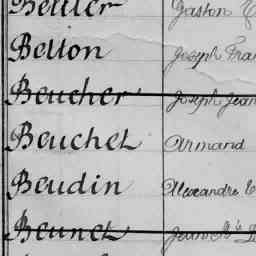 Bellier Gaston
Belton Joseph Fran
Beucher Joseph Jean
Beuchet Armand
Beudin Alexandre
Beunet